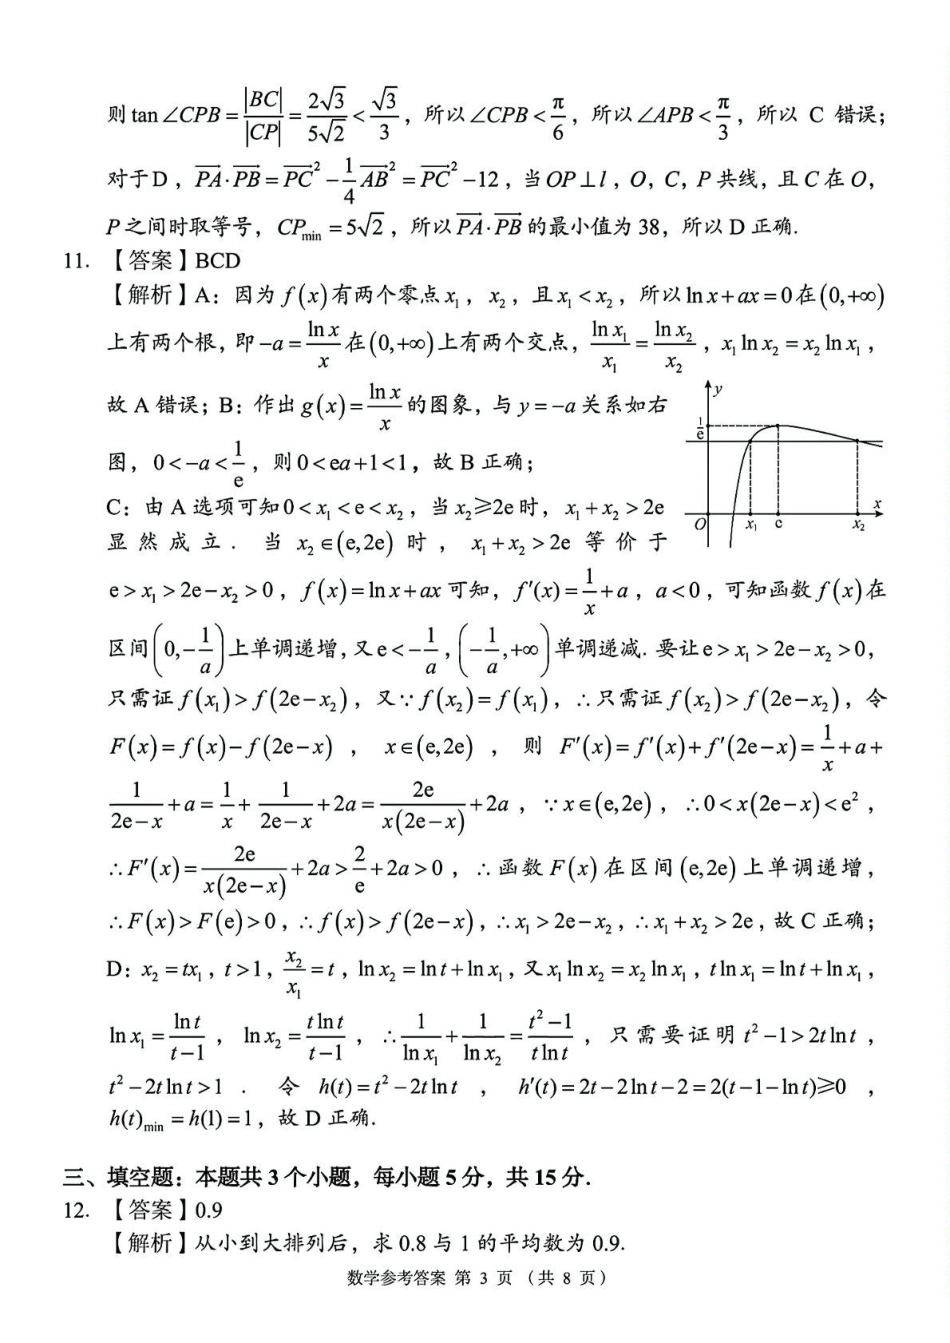 则 tan∠CPB = |BC|/|CP| = 2√3/5√2 < √3/3，所以∠CPB < π/6，所以∠APB < π/3，所以 C 错误；
对于D，PA·PB = PC² − 1/4 AB² = PC² −12，当OP⊥l，O，C，P 共线，且 C 在 O，
P 之间时取等号，CPmin = 5√2，所以PA·PB 的最小值为 38，所以 D 正确.
11. 【答案】BCD
【解析】A：因为 f(x)有两个零点 x₁，x₂，且 x₁ < x₂，所以 ln x + ax = 0 在 (0,+∞)
上有两个根，即 −a = ln x/x 在 (0,+∞)上有两个交点，ln x₁/x₁ = ln x₂/x₂，x₁ ln x₂ = x₂ ln x₁，
故 A 错误；B：作出 g(x) = ln x/x 的图象，与 y = −a 关系如右
图，0 < −a < 1/e，则 0 < ea + 1 < 1，故 B 正确；
C：由 A 选项可知 0 < x₁ < e < x₂，当 x₂ ⩾ 2e 时，x₁ + x₂ > 2e
显然成立．当 x₂ ∈ (e,2e) 时，x₁ + x₂ > 2e 等价于
y
1/e
O
x₁
e
x₂
x
e > x₁ > 2e − x₂ > 0，f(x) = ln x + ax 可知，f′(x) = 1/x + a，a < 0，可知函数 f(x) 在
区间 (0, −1/a) 上单调递增，又 e < −1/a，(−1/a, +∞) 单调递减. 要让 e > x₁ > 2e − x₂ > 0，
只需证 f(x₁) > f(2e − x₂)，又∵ f(x₂) = f(x₁)，∴只需证 f(x₂) > f(2e − x₂)，令
F(x) = f(x) − f(2e − x)，x ∈ (e,2e)，则 F′(x) = f′(x) + f′(2e − x) = 1/x + a +
1/(2e−x) + a = 1/x + 1/(2e−x) + 2a = 2e/(x(2e−x)) + 2a，∵ x ∈ (e,2e)，∴ 0 < x(2e−x) < e²，
∴ F′(x) = 2e/(x(2e−x)) + 2a > 2/e + 2a > 0，∴函数 F(x) 在区间 (e,2e) 上单调递增，
∴ F(x) > F(e) > 0，∴ f(x) > f(2e−x)，∴ x₁ > 2e − x₂，∴ x₁ + x₂ > 2e，故 C 正确；
D：x₂ = tx₁，t > 1，x₂/x₁ = t，ln x₂ = ln t + ln x₁，又 x₁ ln x₂ = x₂ ln x₁，t ln x₁ = ln t + ln x₁，
ln x₁ = ln t/(t−1)，ln x₂ = t ln t/(t−1)，∴ 1/ln x₁ + 1/ln x₂ = (t²−1)/(t ln t)，只需要证明 t² − 1 > 2t ln t，
t² − 2t ln t > 1．令 h(t) = t² − 2t ln t，h′(t) = 2t − 2ln t − 2 = 2(t − 1 − ln t) ⩾ 0，
h(t)min = h(1) = 1，故 D 正确.
三、填空题：本题共 3 个小题，每小题 5 分，共 15 分.
12. 【答案】0.9
【解析】从小到大排列后，求 0.8 与 1 的平均数为 0.9.
数学参考答案 第 3 页（共 8 页）